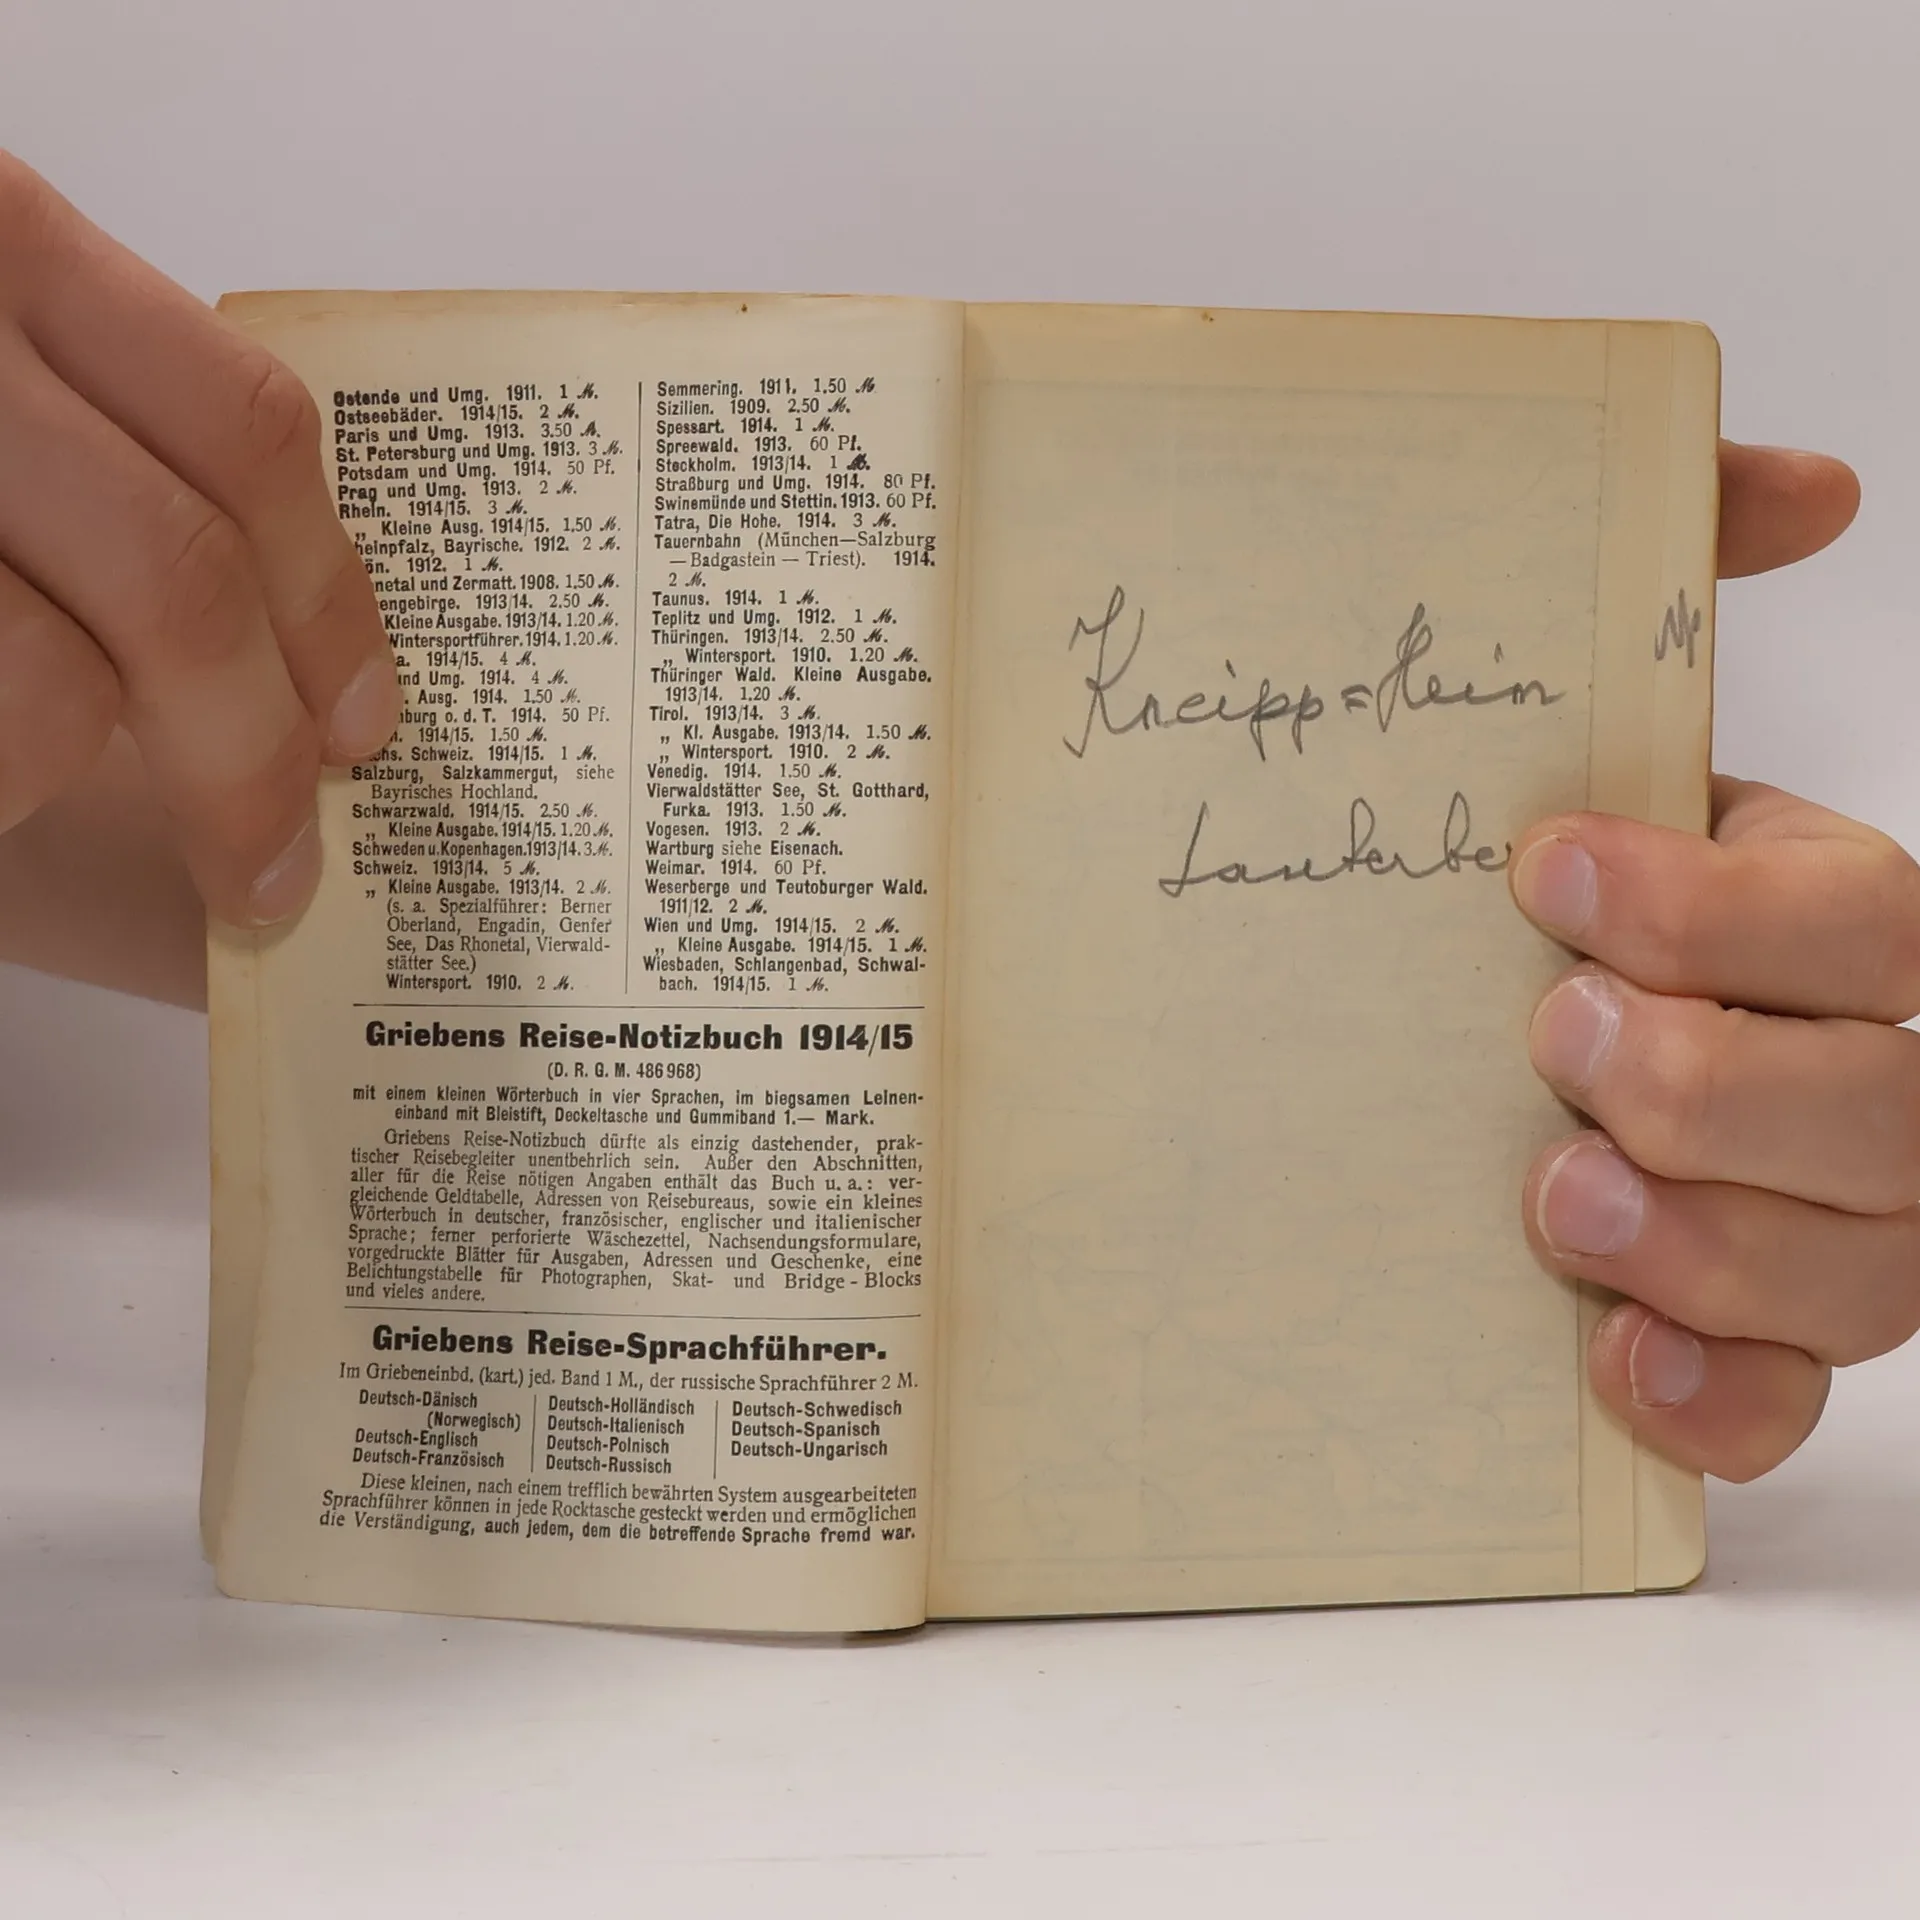 Ostende und Umg. 1911. 1 ℳ.
Ostseebäder. 1914/15. 2 ℳ.
Paris und Umg. 1913. 3.50 ℳ.
St. Petersburg und Umg. 1913. 3 ℳ.
Potsdam und Umg. 1914. 50 Pf.
Prag und Umg. 1913. 2 ℳ.
Rhein. 1914/15. 3 ℳ.
„ Kleine Ausg. 1914/15. 1.50 ℳ.
heinpfalz, Bayrische. 1912. 2 ℳ.
ön. 1912. 1 ℳ.
netal und Zermatt. 1908. 1.50 ℳ.
engebirge. 1913/14. 2.50 ℳ.
Kleine Ausgabe. 1913/14. 1.20 ℳ.
Wintersportführer. 1914. 1.20 ℳ.
a. 1914/15. 4 ℳ.
und Umg. 1914. 4 ℳ.
. Ausg. 1914. 1.50 ℳ.
burg o. d. T. 1914. 50 Pf.
n. 1914/15. 1.50 ℳ.
chs. Schweiz. 1914/15. 1 ℳ.
Salzburg, Salzkammergut, siehe
Bayrisches Hochland.
Schwarzwald. 1914/15. 2.50 ℳ.
„ Kleine Ausgabe. 1914/15. 1.20 ℳ.
Schweden u. Kopenhagen. 1913/14. 3 ℳ.
Schweiz. 1913/14. 5 ℳ.
„ Kleine Ausgabe. 1913/14. 2 ℳ.
(s. a. Spezialführer: Berner
Oberland, Engadin, Genfer
See, Das Rhonetal, Vierwald-
stätter See.)
Wintersport. 1910. 2 ℳ.
Semmering. 1911. 1.50 ℳ.
Sizilien. 1909. 2.50 ℳ.
Spessart. 1914. 1 ℳ.
Spreewald. 1913. 60 Pf.
Stockholm. 1913/14. 1 ℳ.
Straßburg und Umg. 1914. 80 Pf.
Swinemünde und Stettin. 1913. 60 Pf.
Tatra, Die Hohe. 1914. 3 ℳ.
Tauernbahn (München—Salzburg
— Badgastein — Triest). 1914.
2 ℳ.
Taunus. 1914. 1 ℳ.
Teplitz und Umg. 1912. 1 ℳ.
Thüringen. 1913/14. 2.50 ℳ.
„ Wintersport. 1910. 1.20 ℳ.
Thüringer Wald. Kleine Ausgabe.
1913/14. 1.20 ℳ.
Tirol. 1913/14. 3 ℳ.
„ Kl. Ausgabe. 1913/14. 1.50 ℳ.
„ Wintersport. 1910. 2 ℳ.
Venedig. 1914. 1.50 ℳ.
Vierwaldstätter See, St. Gotthard,
Furka. 1913. 1.50 ℳ.
Vogesen. 1913. 2 ℳ.
Wartburg siehe Eisenach.
Weimar. 1914. 60 Pf.
Weserberge und Teutoburger Wald.
1911/12. 2 ℳ.
Wien und Umg. 1914/15. 2 ℳ.
„ Kleine Ausgabe. 1914/15. 1 ℳ.
Wiesbaden, Schlangenbad, Schwal-
bach. 1914/15. 1 ℳ.
Griebens Reise-Notizbuch 1914/15
(D. R. G. M. 486 968)
mit einem kleinen Wörterbuch in vier Sprachen, im biegsamen Leinen-
einband mit Bleistift, Deckeltasche und Gummiband 1.— Mark.
Griebens Reise-Notizbuch dürfte als einzig dastehender, prak-
tischer Reisebegleiter unentbehrlich sein. Außer den Abschnitten,
aller für die Reise nötigen Angaben enthält das Buch u. a.: ver-
gleichende Geldtabelle, Adressen von Reisebureaus, sowie ein kleines
Wörterbuch in deutscher, französischer, englischer und italienischer
Sprache; ferner perforierte Wäschezettel, Nachsendungsformulare,
vorgedruckte Blätter für Ausgaben, Adressen und Geschenke, eine
Belichtungstabelle für Photographen, Skat- und Bridge-Blocks
und vieles andere.
Griebens Reise-Sprachführer.
Im Griebeneinbd. (kart.) jed. Band 1 M., der russische Sprachführer 2 M.
Deutsch-Dänisch
(Norwegisch)
Deutsch-Englisch
Deutsch-Französisch
Deutsch-Holländisch
Deutsch-Italienisch
Deutsch-Polnisch
Deutsch-Russisch
Deutsch-Schwedisch
Deutsch-Spanisch
Deutsch-Ungarisch
Diese kleinen, nach einem trefflich bewährten System ausgearbeiteten
Sprachführer können in jede Rocktasche gesteckt werden und ermöglichen
die Verständigung, auch jedem, dem die betreffende Sprache fremd war.
Kneipp=Heim
Lauterber